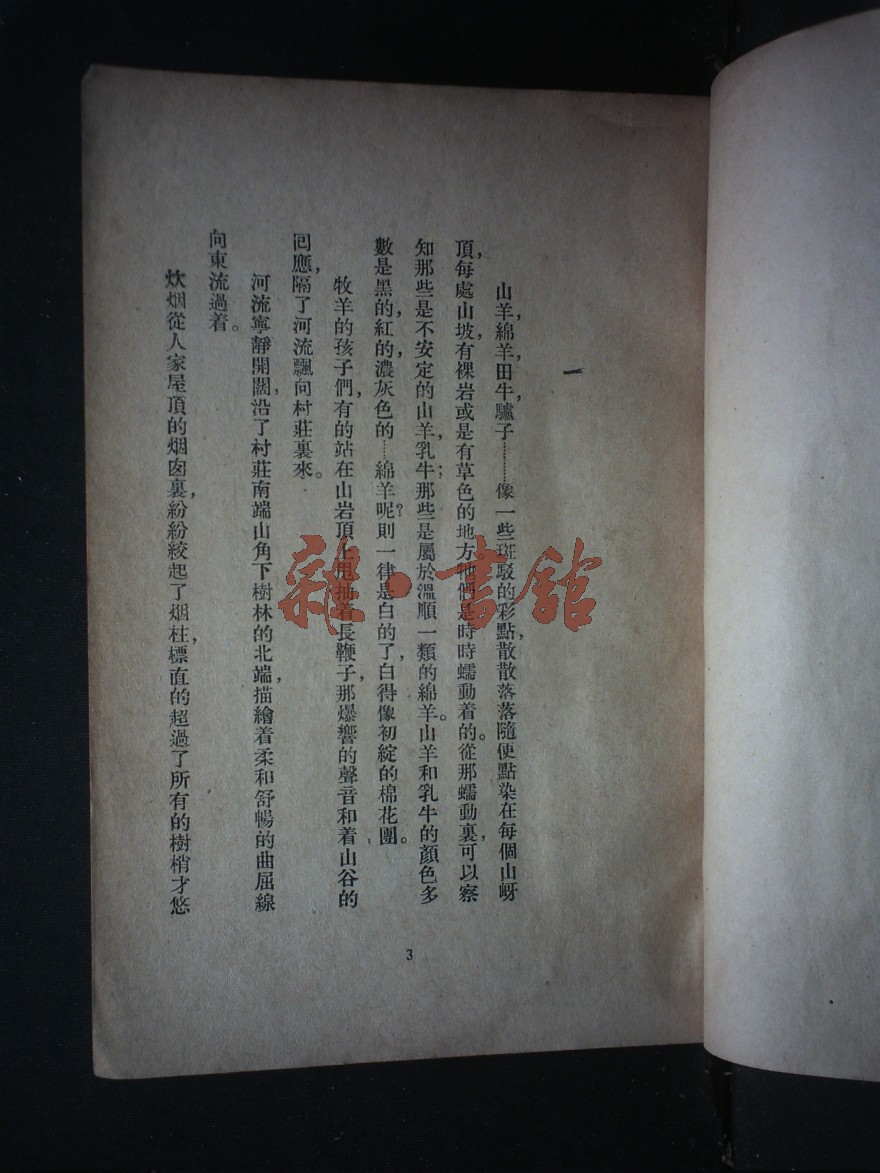 一
山羊,綿羊,田牛,驢子………像一些斑駁的彩點散散落落隨便點染在每個山岈
頂,每處山坡,有裸岩或是有草色的地方。牠們是時時蠕動着的。從那蠕動裏,可以察
知那些是不安定的山羊,乳牛;那些是屬於溫順一類的綿羊。山羊和乳牛的顏色多
數是黑的,紅的,濃灰色的……綿羊呢?則一律是白的了,白得像初綻的棉花團。
牧羊的孩子們,有的站在山岩頂上甩抽着長鞭子,那爆響的聲音和着山谷的
回應,隔了河流飄向村莊裏來。
河流寧靜開闊,沿了村莊南端山角下樹林的北端,描繪着柔和舒暢的曲屈線
向東流過着。
炊烟從人家屋頂的烟囪裏,紛紛絞起了烟柱,標直的超過了所有的樹梢才悠
3
雜·書館